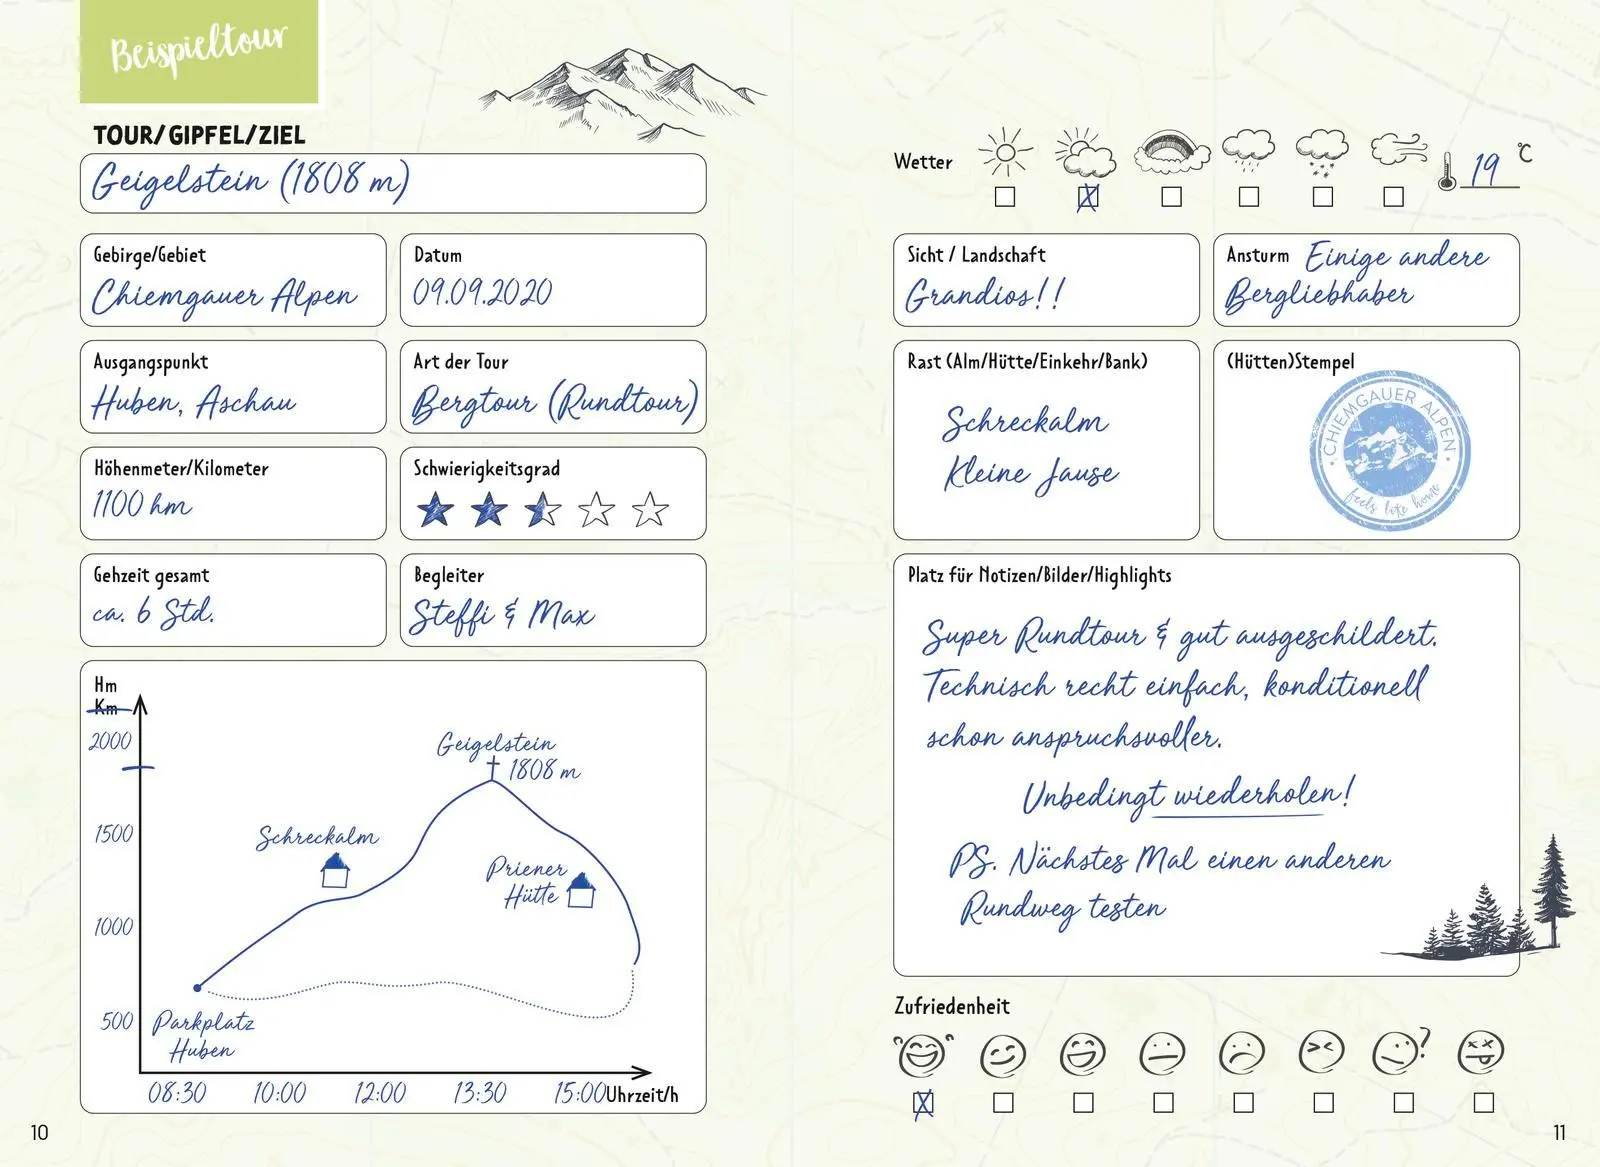 Beispieltour
TOUR/GIPFEL/ZIEL
Geigelstein (1808 m)
Gebirge/Gebiet
Chiemgauer Alpen
Datum
09.09.2020
Ausgangspunkt
Huben, Aschau
Art der Tour
Bergtour (Rundtour)
Höhenmeter/Kilometer
1100 hm
Schwierigkeitsgrad
Gehzeit gesamt
ca. 6 Std.
Begleiter
Steffi & Max
Hm
Km
2000
1500
1000
500
Geigelstein
1808 m
Schreckalm
Priener
Hütte
Parkplatz
Huben
08:30 10:00 12:00 13:30 15:00 Uhrzeit/h
10
Wetter
19 °C
Sicht / Landschaft
Grandios!!
Ansturm Einige andere
Bergliebhaber
Rast (Alm/Hütte/Einkehr/Bank)
Schreckalm
Kleine Jause
(Hütten)Stempel
CHIEMGAUER ALPEN
feels like home
Platz für Notizen/Bilder/Highlights
Super Rundtour & gut ausgeschildert.
Technisch recht einfach, konditionell
schon anspruchsvoller.
Unbedingt wiederholen!
PS. Nächstes Mal einen anderen
Rundweg testen
Zufriedenheit
11